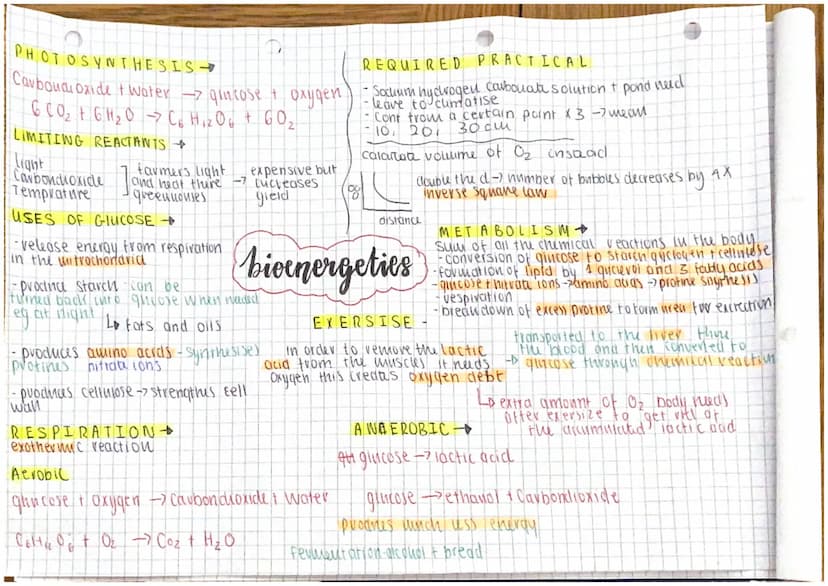 PHOTOSYNTHESIS →
Carbondioxide + water → glucose + oxygen
6CO2 + 6H2O → C6H12O6 + 6O2
LIMITING REACTANTS →
light
carbondioxide
temprature
farmers light
and heat there
greenhouses
→ expensive but
increases
yield
USES OF GLUCOSE →
- release energy from respiration
in the mitrochondria
- produce starch - can be
turned back into glucose when needed
eg at night
↳ fats and oils
- produces amino acids - synthesises
protines nitrate ions
- produces cellulose → strengthes cell
wall
RESPIRATION →
exothermic reaction
Aerobic
glucose + oxygen → carbondioxide + water
+ O2 → CO2 + H2O
bioenergetics
REQUIRED PRACTICAL
- Sodium hydrogen carbonate solution + pond weed
- leave to climatise
- cont from a certain point x 3 → mean
- 10, 20, 30 cm
calculate volume of O2 instead
distance
double the d → number of bubbles decreases by 4x
inverse square law
METABOLISM →
sum of all the chemical reactions in the body
- conversion of glucose to starch glycogen + cellulose
- formation of lipid by 1 glycerol and 3 fatty acids
- glucose + nitrate ions → amino acids → protine snythesis
- respiration
- breakdown of excess protine to form urea for excretion
EXERSISE -
in order to remove the lactic
acid from the muscles it needs
oxygen this creates oxygen debt
transported to the liver thru
the blood and then converted to
→ glucose through chemical reaction
↳ extra amount of O2 body needs
after exersize to get rid of
the accumulated lactic acid
ANAEROBIC →
glucose → lactic acid
glucose → ethanol + carbondioxide
produces much less energy
fermentation - alcohol + bread